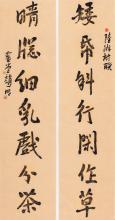 陸游詩聯
矮帋斜行閑作草
晴牕細乳戲分茶